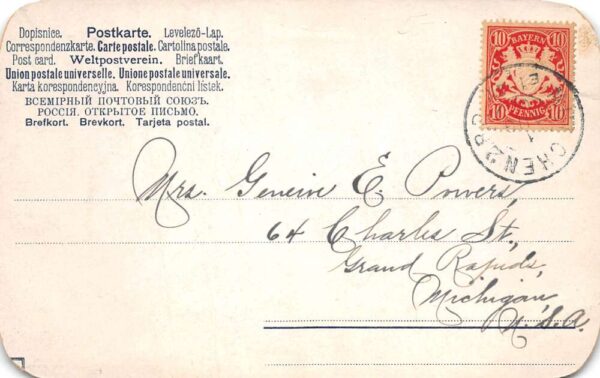 Dopisnice. Postkarte. Levelező-Lap.
Correspondenzkarte. Carte postale. Cartolina postale.
Post card. Weltpostverein. Briefkaart.
Union postale universelle. Unione postale universale.
Karta korespondencyjna. Korespondenčni listek.
ВСЕМІРНЫЙ ПОЧТОВЫЙ СОЮЗЪ.
РОССІЯ. ОТКРЫТОЕ ПИСЬМО.
Brefkort. Brevkort. Tarjeta postal.
10 BAYERN 10
10 PFENNIG 10
CHEN 2 B.
Mrs. Geneive E. Powers,
64 Charles St.,
Grand Rapids,
Michigan,
U.S.A.